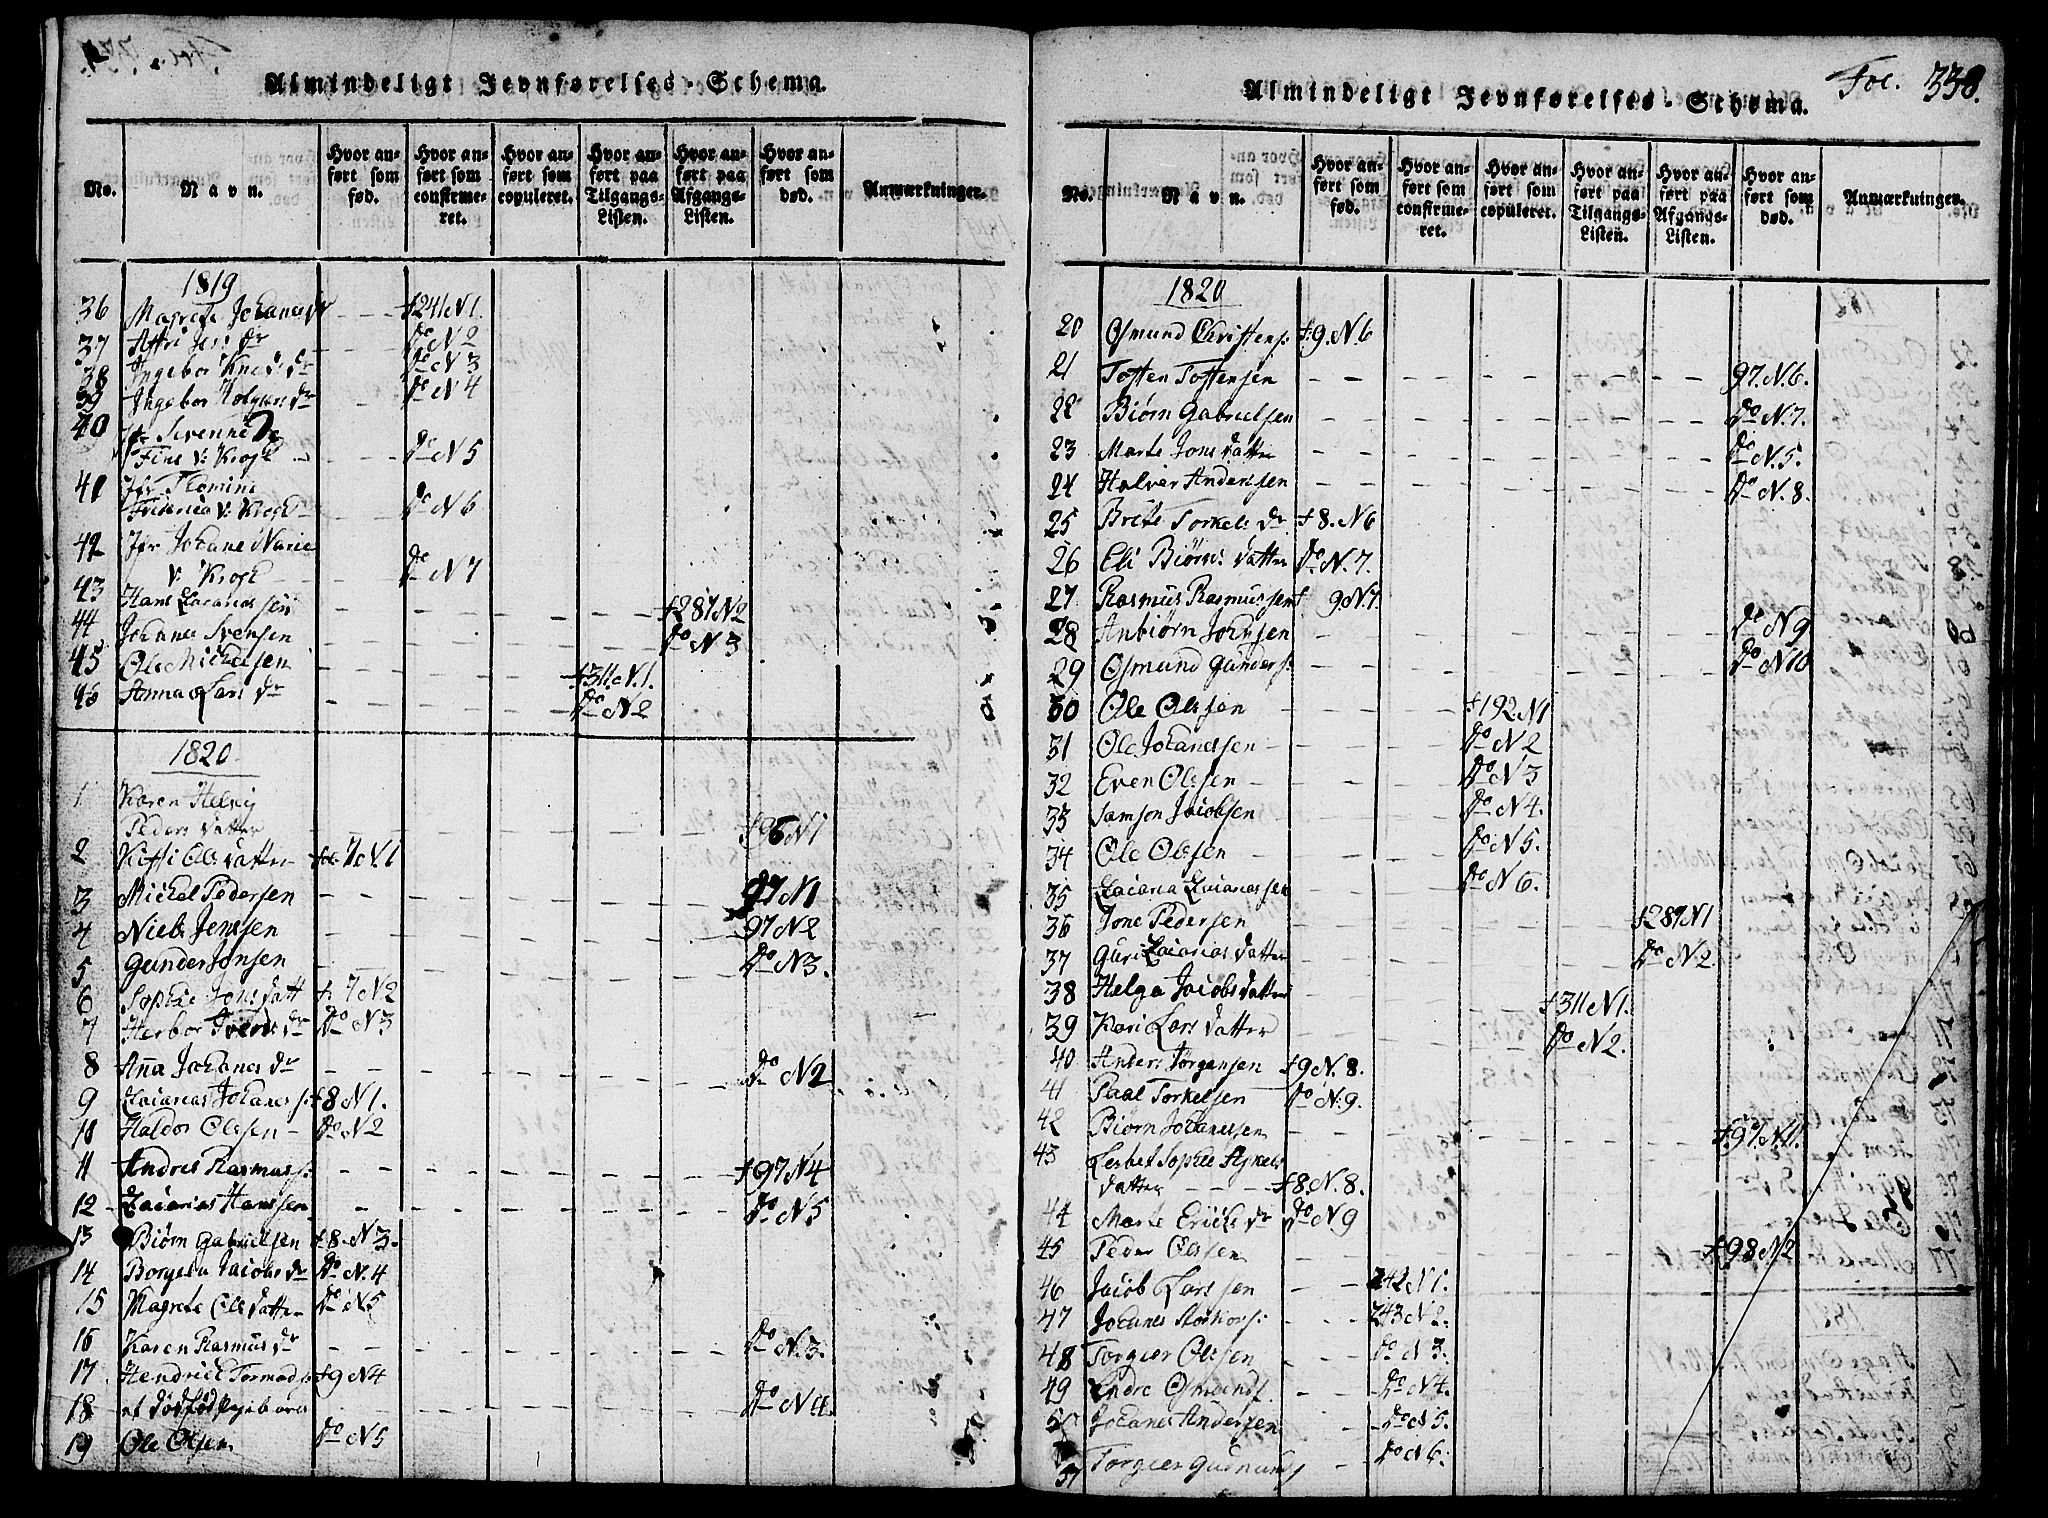 Almindeligt Jevnførelses-Schema.
No. Navn. Hvor anført som fød. Hvor anført som confirmeret. Hvor anført som copuleret. Hvor anført paa Tilgangs-Listen. Hvor anført paa Afgangs-Listen. Hvor anført som død. Anmærkninger.
1819
36 Magrete Johanes dr †241 N1.
37 dr do N2
38 Ingebor dr do N3
39 Ingebor Holgers dr do N4
40 Jfr
Fine v: Krogh do N5
41 Jfr
v: Krogh do N6
42 Jfr Johane Marie
v: Krogh do N7
43 Hans Zacariassen †287 N2
44 Johanes Svensen do N3
45 Ole Mickelsen †311 N.1.
46 Anna Lars dr do N2
1820
1 Karen Helvig
Peders datter †96 N1
2 Ols datter fol 7 N1
3 Mickel Pedersen 97 N1
4 Niels Jenssen 97 N2
5 Gunder Jonsen do N3.
6 Sophie Jons datt †7 N2
7 Herbor dr do N3
8 Anna Johanes dr do N2
9 Zacarias Johanes s: †8 N1.
10 Haldor Olssen do N2
11 Andres Rasmus s: †97 N4
12 Zacarias Hanssen do N5
13 Biørn Gabrielsen †8. N3.
14 Jacobs dr do N.4
15 Magrete Ols datter do N5
16 Karen Rasmus dr do N.3.
17 Hendrick Tormods †9 N4
18 et dødfød do N4.
19 Ole Olsen do N5
Almindeligt Jevnførelses-Schema. Fol. 338.
No. Navn. Hvor anført som fød. Hvor anført som confirmeret. Hvor anført som copuleret. Hvor anført paa Tilgangs-Listen. Hvor anført paa Afgangs-Listen. Hvor anført som død. Anmærkninger.
1820
20 Osmund Christens: †9. N6
21 Tosten Tostensen 97. N6.
22 Biørn Gabrielsen do N.7.
23 Marte Jons datter do N.5.
24 Halvor Anderssen do N.8.
25 Brete Torkels dr †8. N6
26 Eli Biørns datter do N.7.
27 Rasmus Rasmussen 9 N7.
28 Anbiørn Johnsen do N9
29 Osmund Gunders: do N10
30 Ole Olssen †192 N1
31 Ole Johanessen do N2
32 Even Olssen do N3
33 Samson Jacobsen do N4.
34 Ole Olssen do N5.
35 Zacaria Zacariassen do N6.
36 Jone Pedersen †287 N1
37 Guri Zacarias datter do N2.
38 Helga Jacobs datter †311 N1.
39 Kari Lars datter do N2.
40 Anders Jørgensen †9 N.8.
41 Paal Torkelsen do N.9.
42 Biørn Johanessen †97. N11.
43 Lisbet Sophie
datter †8. N.8.
44 Marte Ericks dr do N9
45 Peder Olssen †98 N2
46 Jacob Larssen 242 N1.
47 Johanes 243 N2.
48 Torgier Olssen do N3.
49 Endre Osmunds do N4.
50 Johanes Andersen do N5.
51 Torgier Gudmunds do N6.